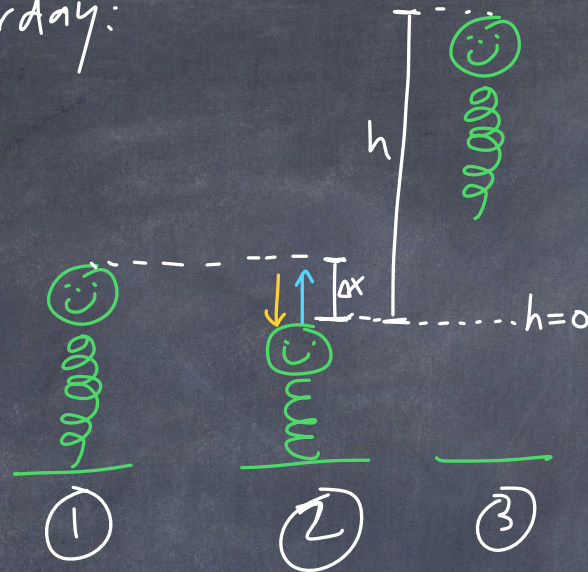 rday:
h
Δx
h=0
1
2
3